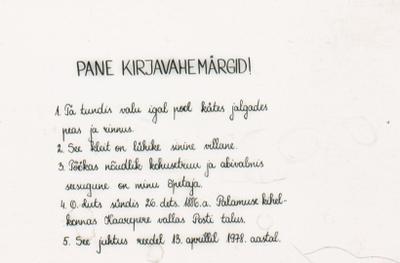 PANE KIRJAVAHEMÄRGID!
1. Ta tundis valu igal pool kätes jalgades
peas ja rinnus.
2. See kleit on lühike sinine villane.
3. Töökas nõudlik kohusetruu ja abivalmis
seesugune on minu õpetaja.
4. O. Luts sündis 26. dets. 1886. a. Palamuse kihel-
konnas Kaarepere vallas Posti talus.
5. See juhtus reedel 13. aprillil 1978. aastal.